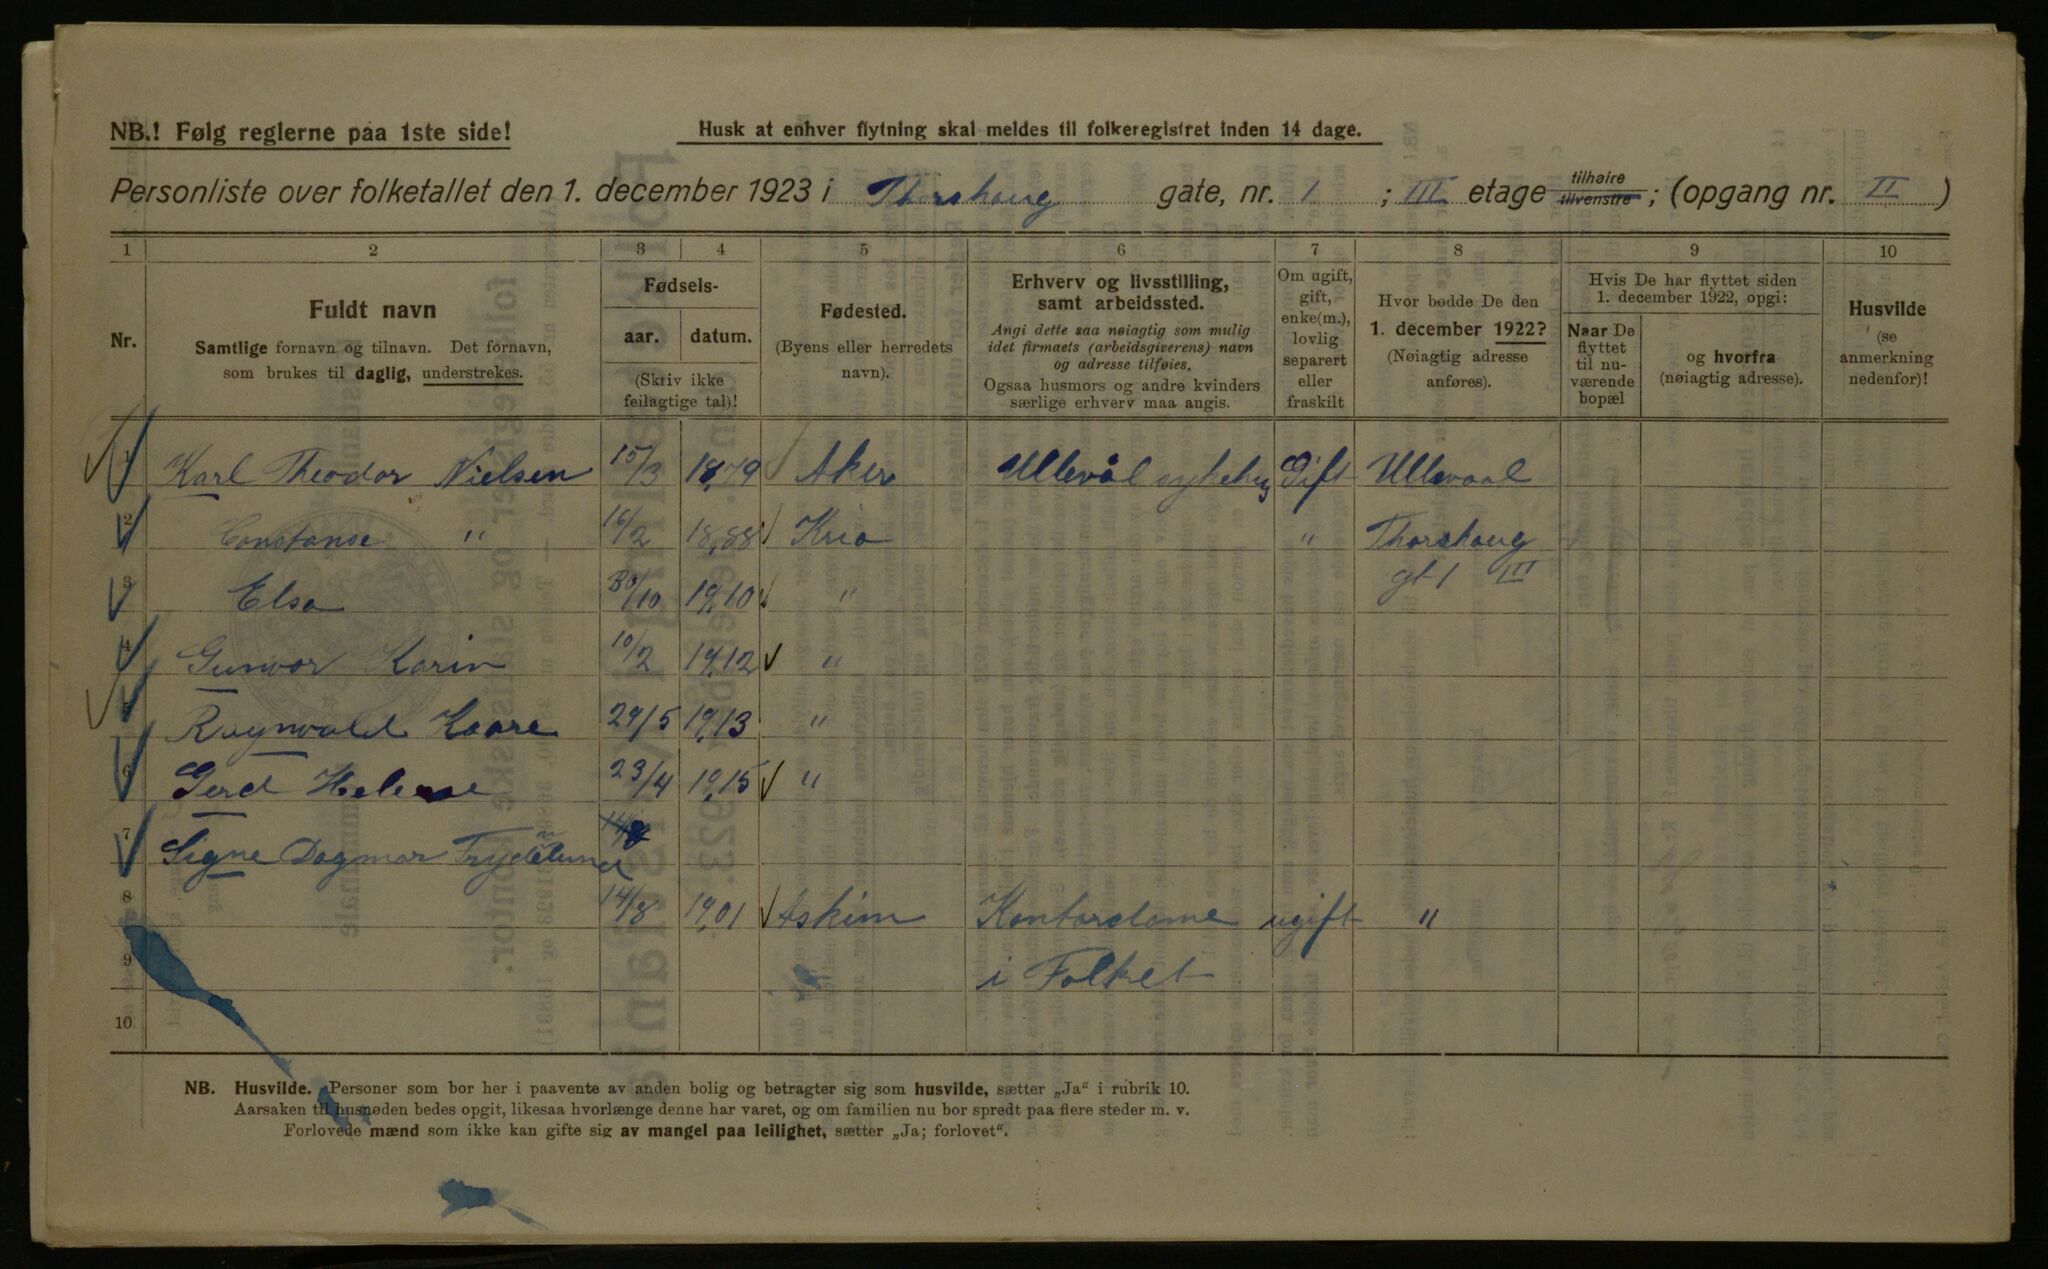 NB.! Følg reglerne paa 1ste side!
Husk at enhver flytning skal meldes til folkeregistret inden 14 dage.
Personliste over folketallet den 1. december 1923 i Thorshaug gate, nr. 1 ; III etage tilhøire tilvenstre ; (opgang nr. II )
1 2 3 4 5 6 7 8 9 10
Nr.
Fuldt navn
Samtlige fornavn og tilnavn. Det fornavn,
som brukes til daglig, understrekes.
Fødsels-
aar. datum.
(Skriv ikke
feilagtige tal)!
Fødested.
(Byens eller herredets
navn).
Erhverv og livsstilling,
samt arbeidssted.
Angi dette saa nøiagtig som mulig
idet firmaets (arbeidsgiverens) navn
og adresse tilføies.
Ogsaa husmors og andre kvinders
særlige erhverv maa angis.
Om ugift,
gift,
enke(m.),
lovlig
separert
eller
fraskilt
Hvor bodde De den
1. december 1922?
(Nøiagtig adresse
anføres).
Hvis De har flyttet siden
1. december 1922, opgi:
Naar De
flyttet
til nu-
værende
bopæl
og hvorfra
(nøiagtig adresse).
Husvilde
(se
anmerkning
nedenfor)!
1 Karl Theodor Nielsen 15/3 1879 Aker Ullevål sykehus Gift Ullevaal
2 Constanse " 16/2 18,88 Kria " Thorshaug
3 Elsa 30/10 19,10 " gt 1 III
4 Gunvor Karin 10/2 19,12 "
5 Ragnvald Kaare 29/5 19,13 "
6 Gerd Helene 23/4 19,15 "
7 Signe Dagmar Frydenlund 14/8
8 14/8 19,01 Askim Kontordame ugift "
9 i Folket
10
NB. Husvilde. Personer som bor her i paavente av anden bolig og betragter sig som husvilde, sætter „Ja" i rubrik 10.
Aarsaken til husnøden bedes opgit, likesaa hvorlænge denne har varet, og om familien nu bor spredt paa flere steder m. v.
Forlovede mænd som ikke kan gifte sig av mangel paa leilighet, sætter „Ja; forlovet".